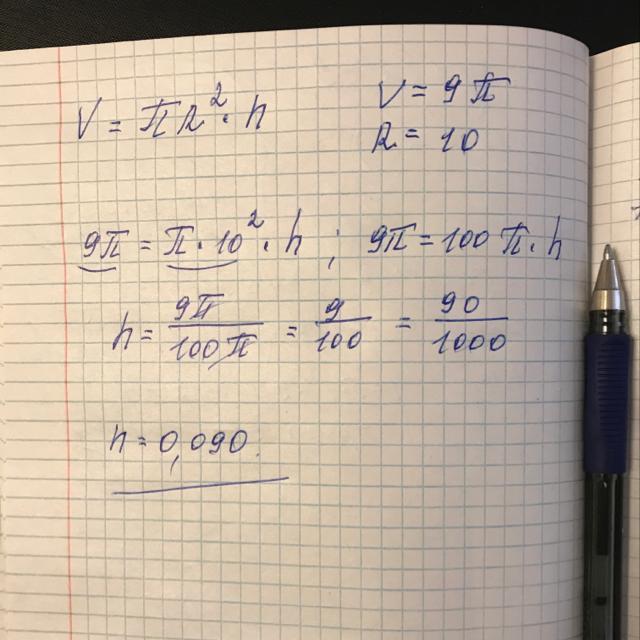 V = πR²·h
V = 9π
R = 10
9π = π·10²·h ; 9π = 100π·h
h = 9π/100π = 9/100 = 90/1000
h = 0,090.